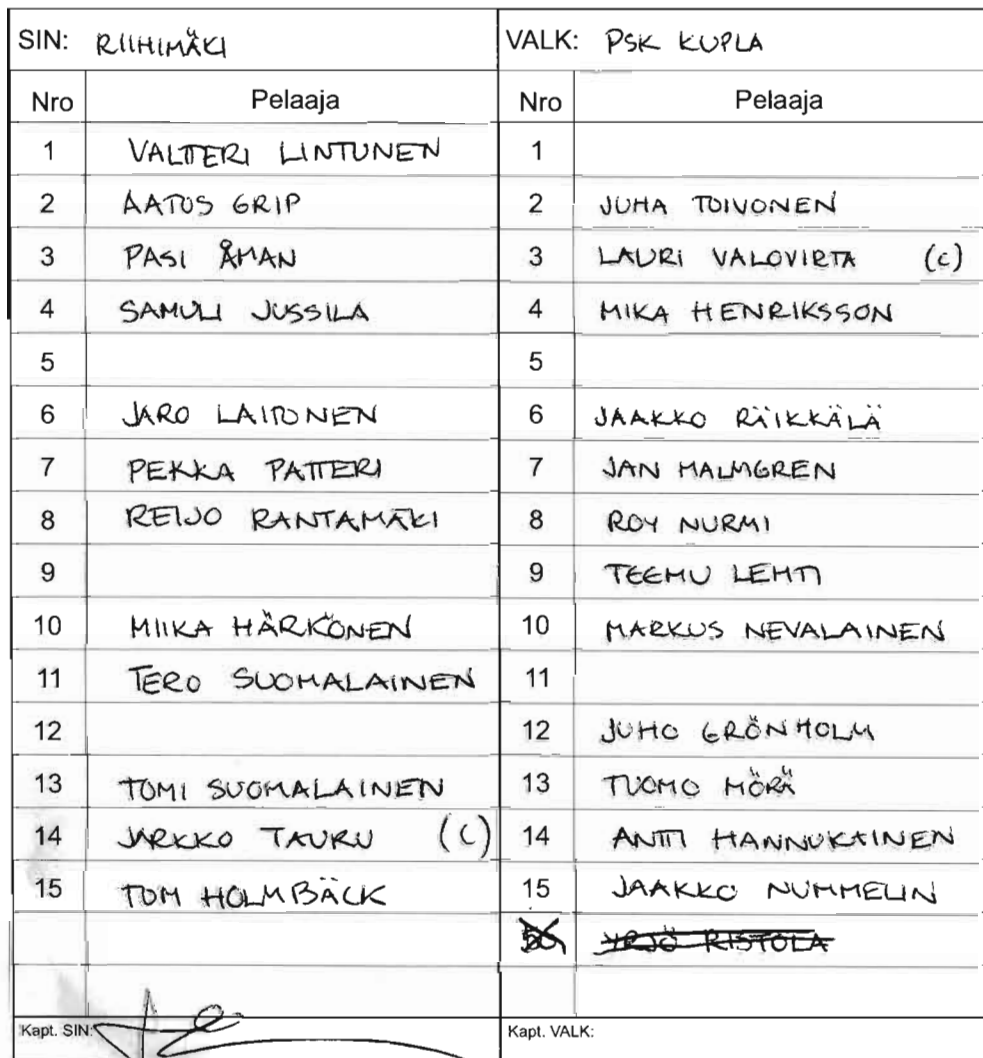 SIN: RIIHIMÄKI VALK: PSK KUPLA
Nro Pelaaja Nro Pelaaja
1 VALTTERI LINTUNEN 1
2 AATOS GRIP 2 JUHA TOIVONEN
3 PASI ÅMAN 3 LAURI VALOVIRTA (c)
4 SAMULI JUSSILA 4 MIKA HENRIKSSON
5 5
6 JARO LAITONEN 6 JAAKKO RÄIKKÄLÄ
7 PEKKA PATTERI 7 JAN MALMGREN
8 REIJO RANTAMÄKI 8 ROY NURMI
9 9 TEEMU LEHTI
10 MIIKA HÄRKÖNEN 10 MARKUS NEVALAINEN
11 TERO SUOMALAINEN 11
12 12 JUHO GRÖNHOLM
13 TOMI SUOMALAINEN 13 TUOMO MÖRÄ
14 JARKKO TAURU (C) 14 ANTTI HANNUKAINEN
15 TOM HOLMBÄCK 15 JAAKKO NUMMELIN
YRJÖ RISTOLA
Kapt. SIN: Kapt. VALK: